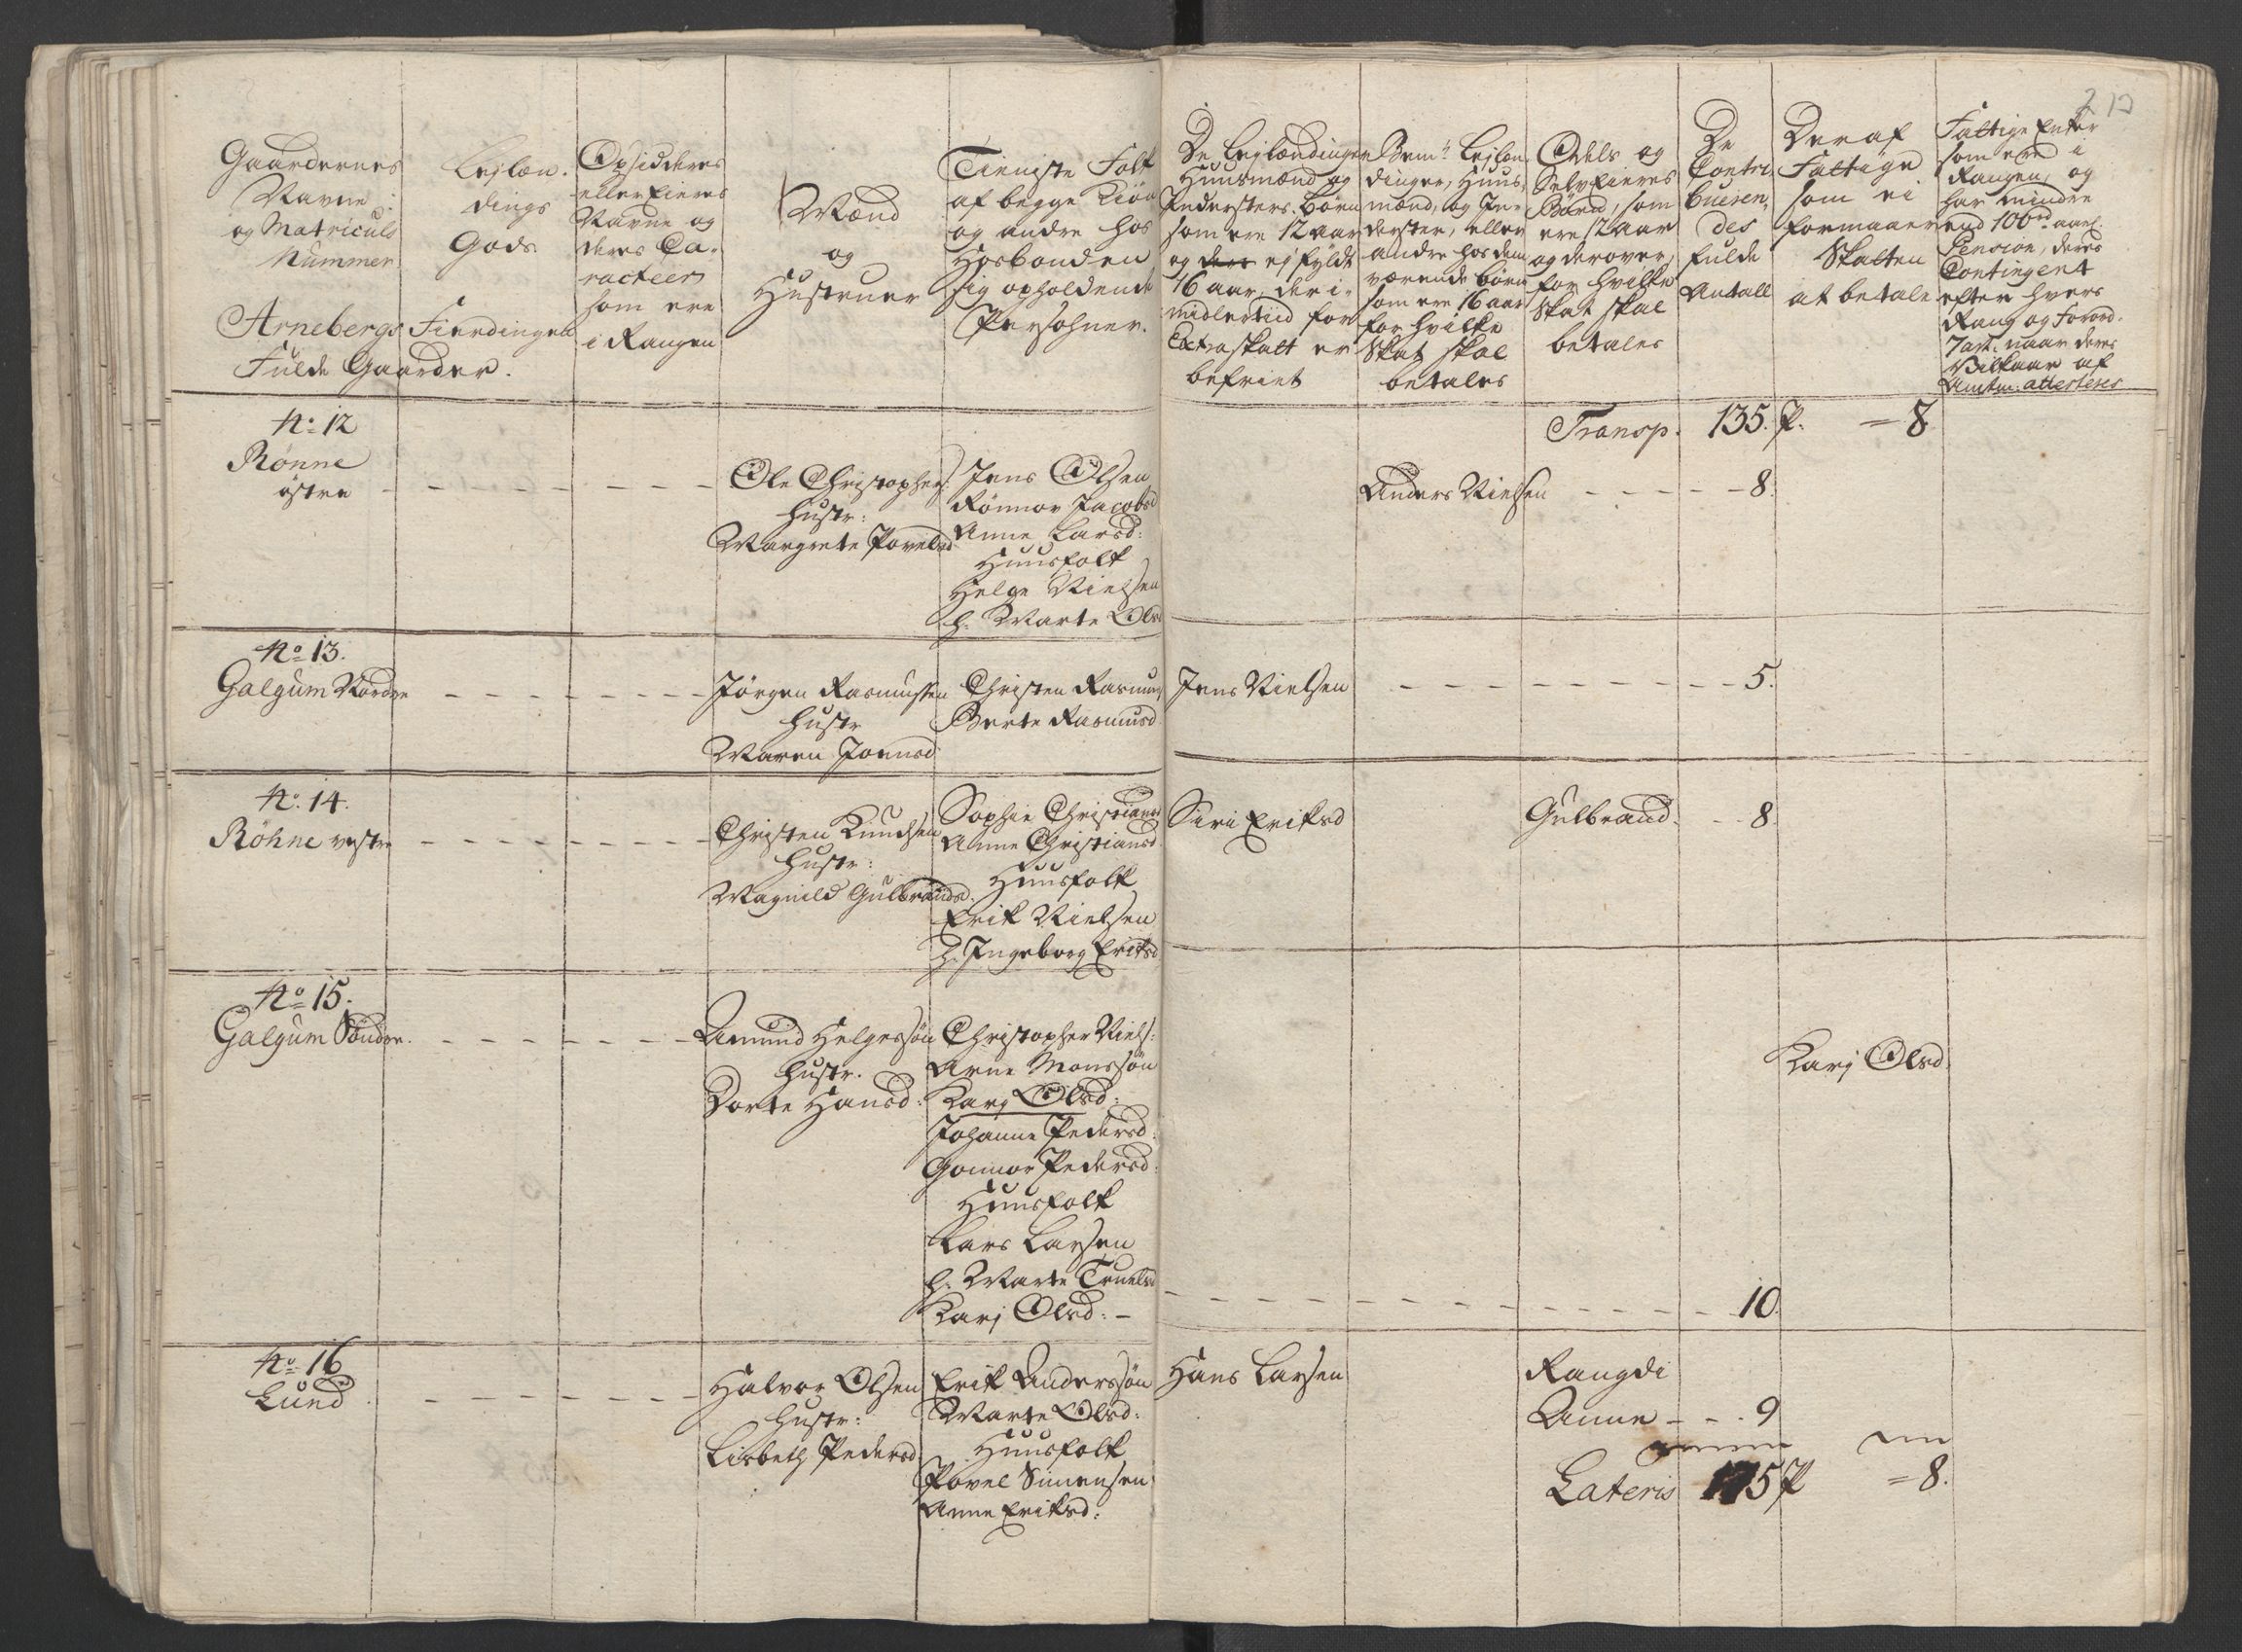 213
Gaardernes
Navne
og Matriculs
Nummer
Lejlæn-
dings
Gods
Opsiddernes
eller Eieres
Navne og
deres Ca-
racteer
som ere
i Rangen
Mænd
og
Hustruer
Tieniste Folk
af begge Kiøn
og andre hos
Hosbonden
sig opholdende
Persohner.
De Lejlændinger
Huusmænd og
Indersters Børn
som ere 12 aar
og ej fyldt
16 aar, der i-
midlertiid for
Extraskatt er
befriet
Bem:te Lejlæn-
dinger, Huus-
mænd, og In-
derster, eller
andre hos dem
værende børn
som ere 16 aar
for hvilke
Skat skal
betales
Odels og
Selv Eieres
Børn, som
ere 12 aar
og derover,
for hvilke
Skat skal
betales
De
Contri-
bueren-
des
fulde
Antall
Deraf
Fattige
som ei
formaaer
Skatten
at betale
Fattige Enker
som ere i
Rangen, og
har mindre
end 100rd aarl:
Pension, deres
Contingent
efter hvers
Rang og Forord.
7 art: naar deres
Vilkaar af
Amtm: attesteres
Arnebergs Fierdingen
Fulde Gaarder.
Transp. 135. P. = 8
No 12
Rønne
østre
Ole Christophers:
Hustr:
Margrete Povelsd
Jens Olsen
Rønnov Jacobsd
Anne Larsd:
Huusfolk
Helge Nielsen
h. Marte Olsd
Anders Nielsen - - - - 8.
No 13.
Galgum Nordre
Jørgen Rasmussen
Hustr
Maren Joensd
Christen Rasmus
Berte Rasmusd
Jens Nielsen - - - - 5.
No. 14.
Røhne vestre
Christen Knudsen
Hustr:
Magnild Gulbrandsd.
Sophie Christiansd
Anne Christiansd
Huusfolk
Erik Nielsen
h. Ingeborg Eriksd
Siri Eriksd
Gulbrand. - - 8.
No 15.
Galgum Søndre.
Amund Helgessøn
Hustr.
Dorte Hansd:
Christopher Niels:
Arne Monssøn
Karj Olsd:
Johanne Pedersd:
Gonnor Pedersd:
Huusfolk
Lars Larsen
h. Marte Truelsd
Karj Olsd: -
10.
Karj Olsd.
No 16
Lund
Halvor Olsen
Hustr:
Lisbeth Pedersd
Erik Anderssøn
Marte Olsd:
Huusfolk
Povel Simensen
Anne Eriksd:
Hans Larsen
Rangdi
Anne - - . 9
Lateris 175 P = 8.